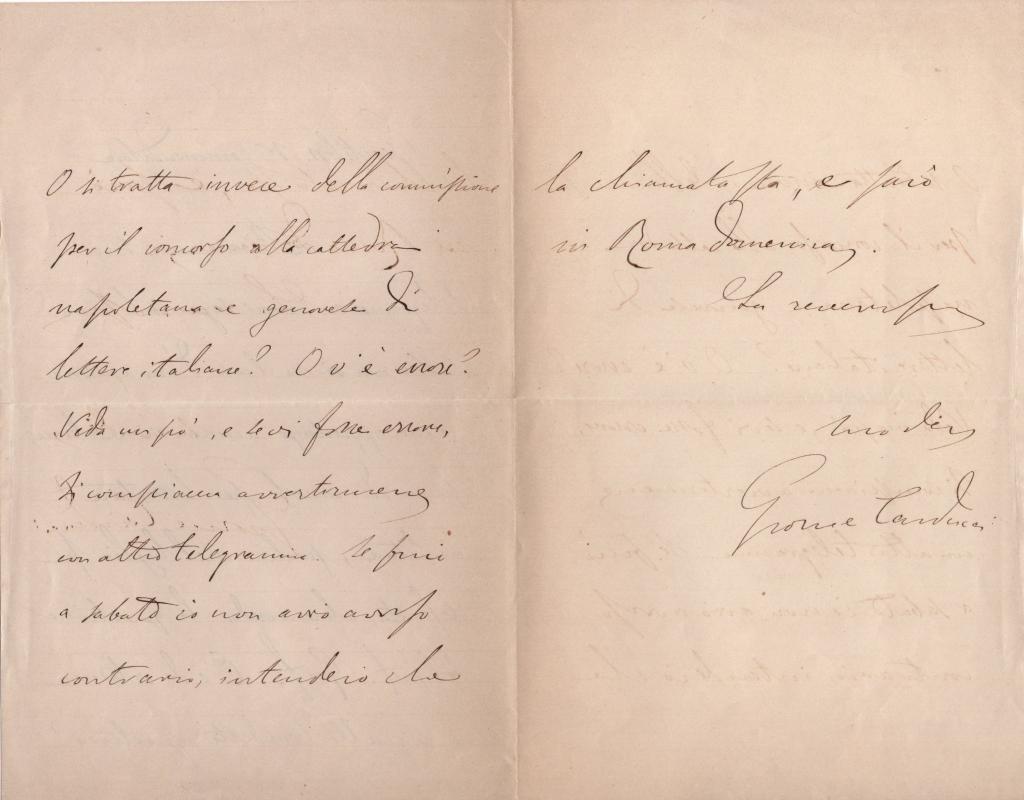 O si tratta invece della commissione
per il concorso alla cattedra
napoletana e genovese di
lettere italiane? O v'è errore?
Vida un po', e se vi fosse errore,
si compiaccia avvertirmene
con altro telegramma. Se fino
a sabato io non avrò avviso
contrario, intenderò che
la chiamata sta, e sarò
in Roma domenica.
La riverisco
suo dev
Giosue Carducci